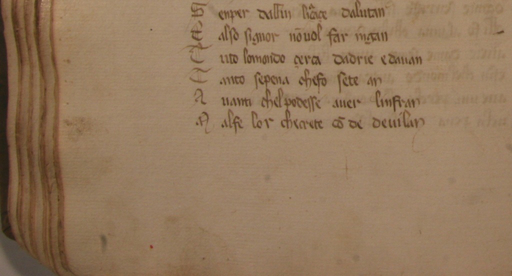 S enper dalun li dice dalutan
E also signor no uol far ingan
T uto lomondo cerca dadrie e dauan
T anto se pena chefo sete an
A uanti chel podesse auer linfran
M alfe lor che crete de deuilan